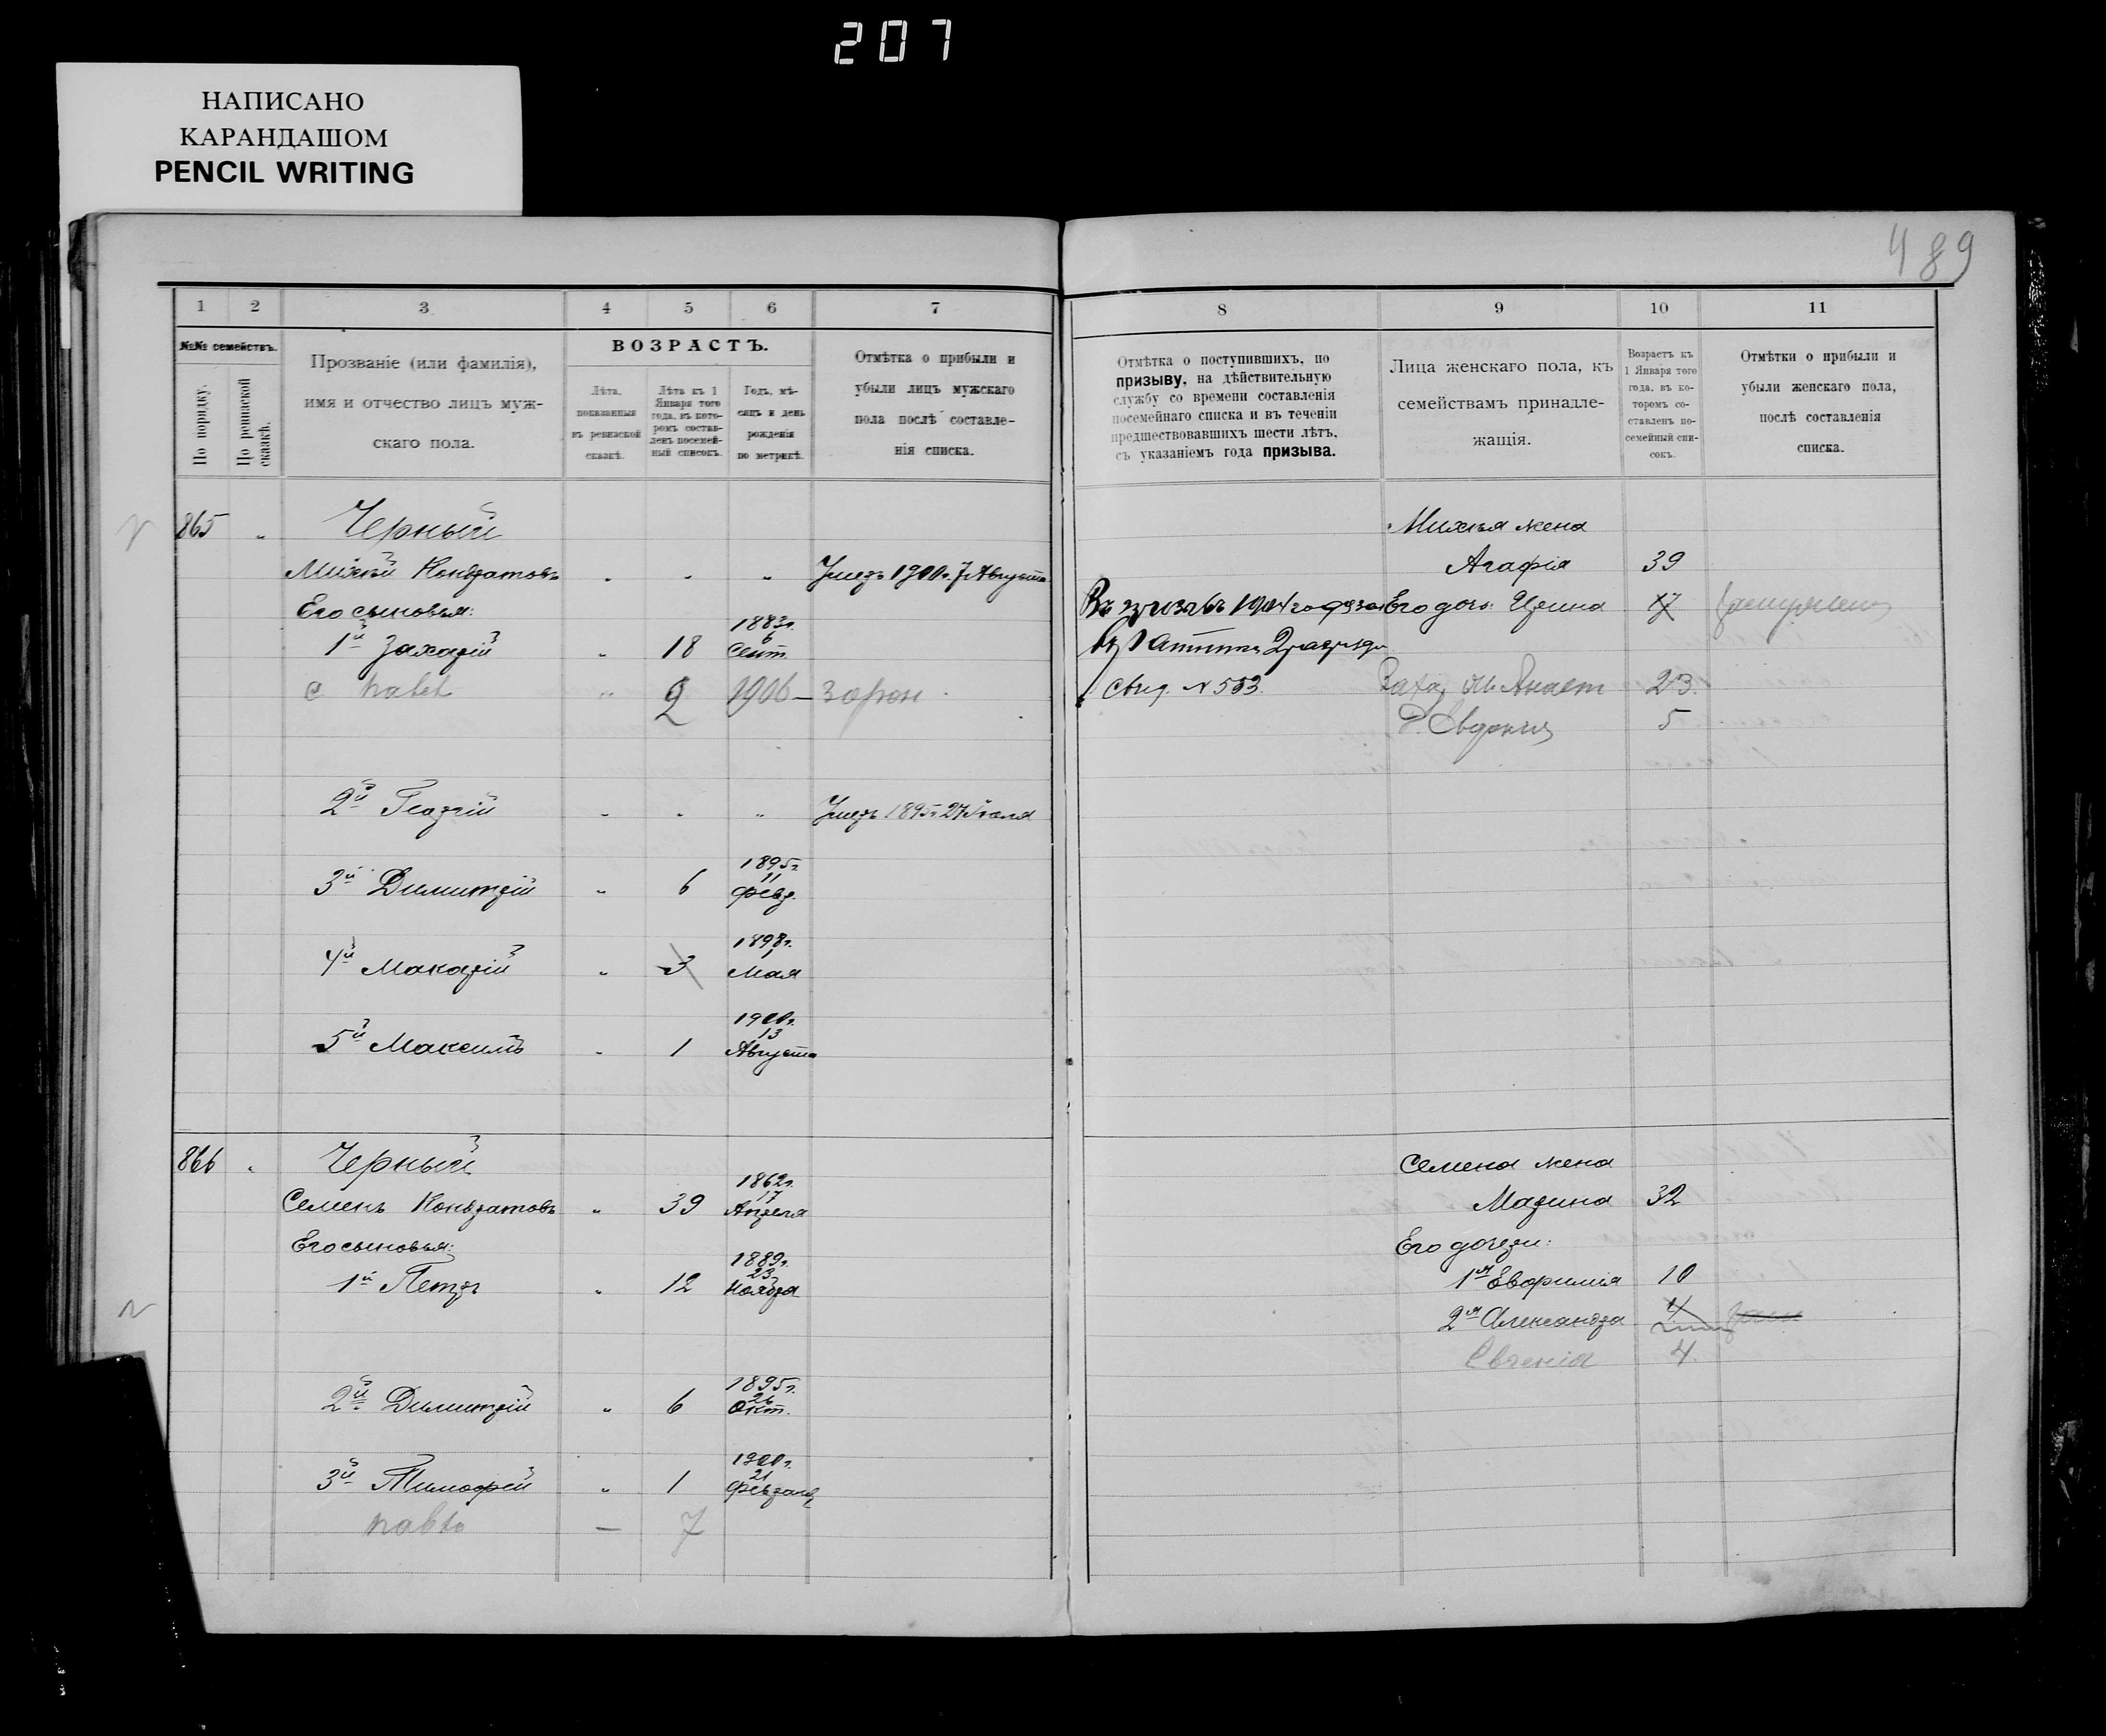 207
НАПИСАНО
КАРАНДАШОМ
PENCIL WRITING
489
1 2 3 4 5 6 7
8 9 10 11
№№ семействъ.
По порядку.
По ревизской сказкѣ.
Прозваніе (или фамилія),
имя и отчество лицъ муж-
скаго пола.
ВОЗРАСТЪ.
Лѣта,
показанныя
въ ревизской
сказкѣ.
Лѣта къ 1
Января того
года, въ кото-
ромъ состав-
ленъ посемей-
ный списокъ.
Годъ, мѣ-
сяцъ и день
рожденія
по метрикѣ.
Отмѣтка о прибыли и
убыли лицъ мужскаго
пола послѣ составле-
нія списка.
Отмѣтка о поступившихъ, по
призыву, на дѣйствительную
службу со времени составленія
посемейнаго списка и въ теченіи
предшествовавшихъ шести лѣтъ,
съ указаніемъ года призыва.
Лица женскаго пола, къ
семействамъ принадле-
жащія.
Возрастъ къ
1 Января того
года, въ ко-
торомъ со-
ставленъ по-
семейный спи-
сокъ.
Отмѣтки о прибыли и
убыли женскаго пола,
послѣ составленія
списка.
865 „ Черный
Михѣй Кондратовъ „ „ „ Умеръ 1900г. 7 Августа
Его сыновья:
1й Захарій „ 18 1883г. 6 Сент.
с Павел „ 2 1906 —
2й Георгій „ „ „ Умеръ 1895г. 27 Іюля
3й Димитрій „ 6 1895г. 11 Февр.
4й Макарій „ 3 1898г. 1 Мая
5й Максимъ „ 1 1900г. 13 Августа
Михѣя жена
Агафія 39
Въ призывъ 1904 года
Его дочь Ирина 17
Свид. № 553.
Анаст 23.
д. Евдокия 5
866 „ Черный
Семенъ Кондратовъ „ 39 1862г. 17 Апрѣля
Его сыновья:
1й Петръ „ 12 1889г. 23 Ноября
2й Димитрій „ 6 1895г. 26 Окт.
3й Тимофей „ 1 1900г. 21 Февраля
Павло — 7
Семена жена
Марина 32
Его дочери:
1я Евфимія 10
2я Александра 4
Евгенія 4.